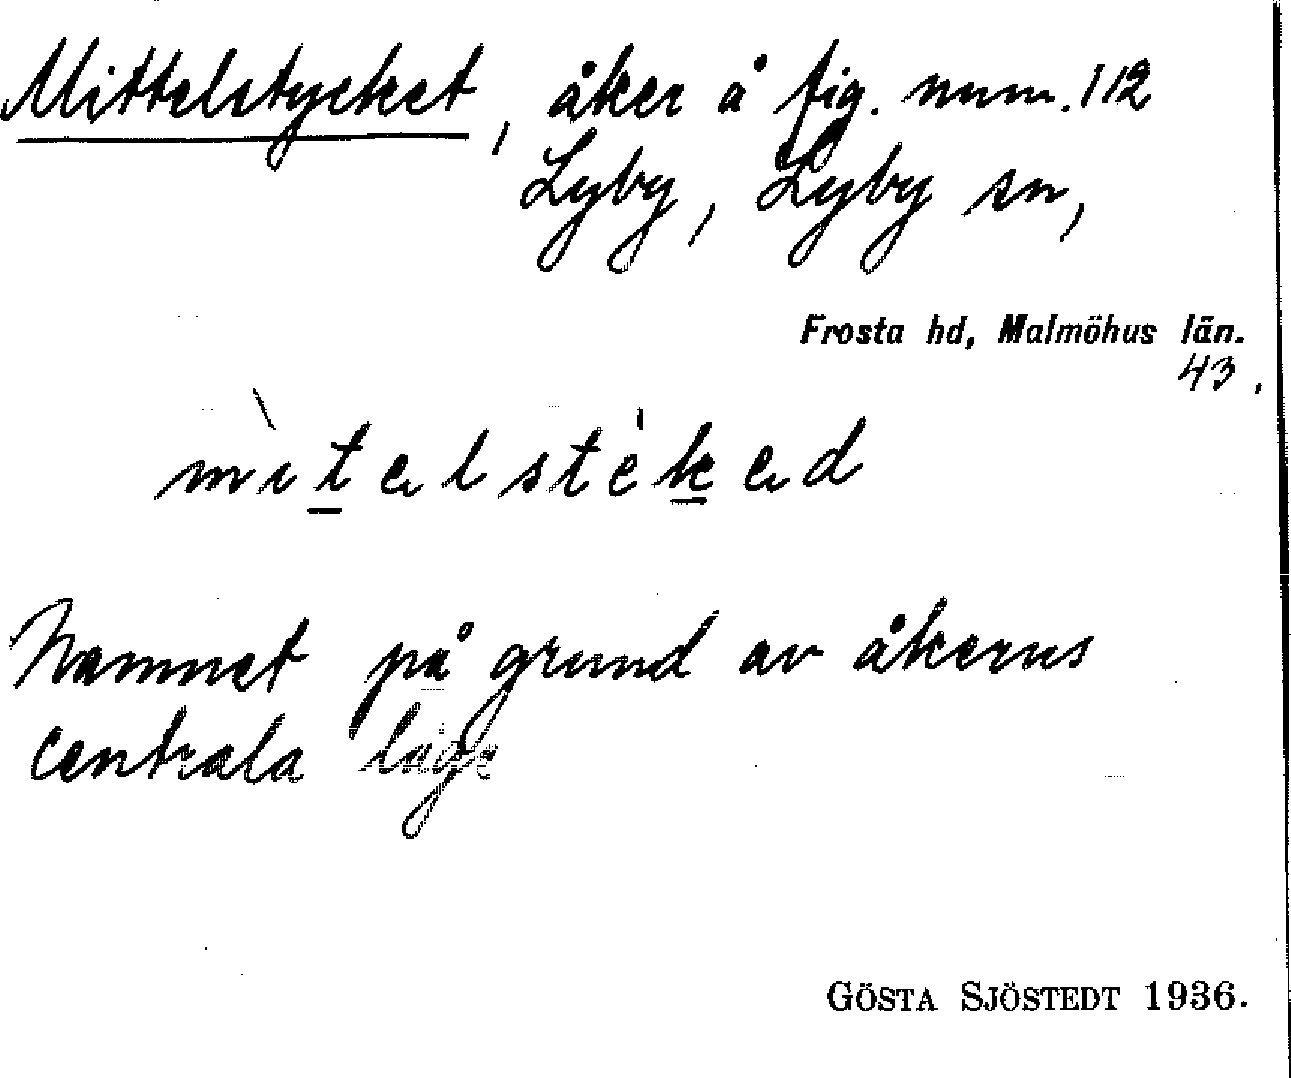 Mittelstycket, åker å fig. num. 112
Lyby, Lyby sn,
Frosta hd, Malmöhus län.
43.
mìtelstéked
Namnet på grund av åkerns
centrala läge
GÖSTA SJÖSTEDT 1936.